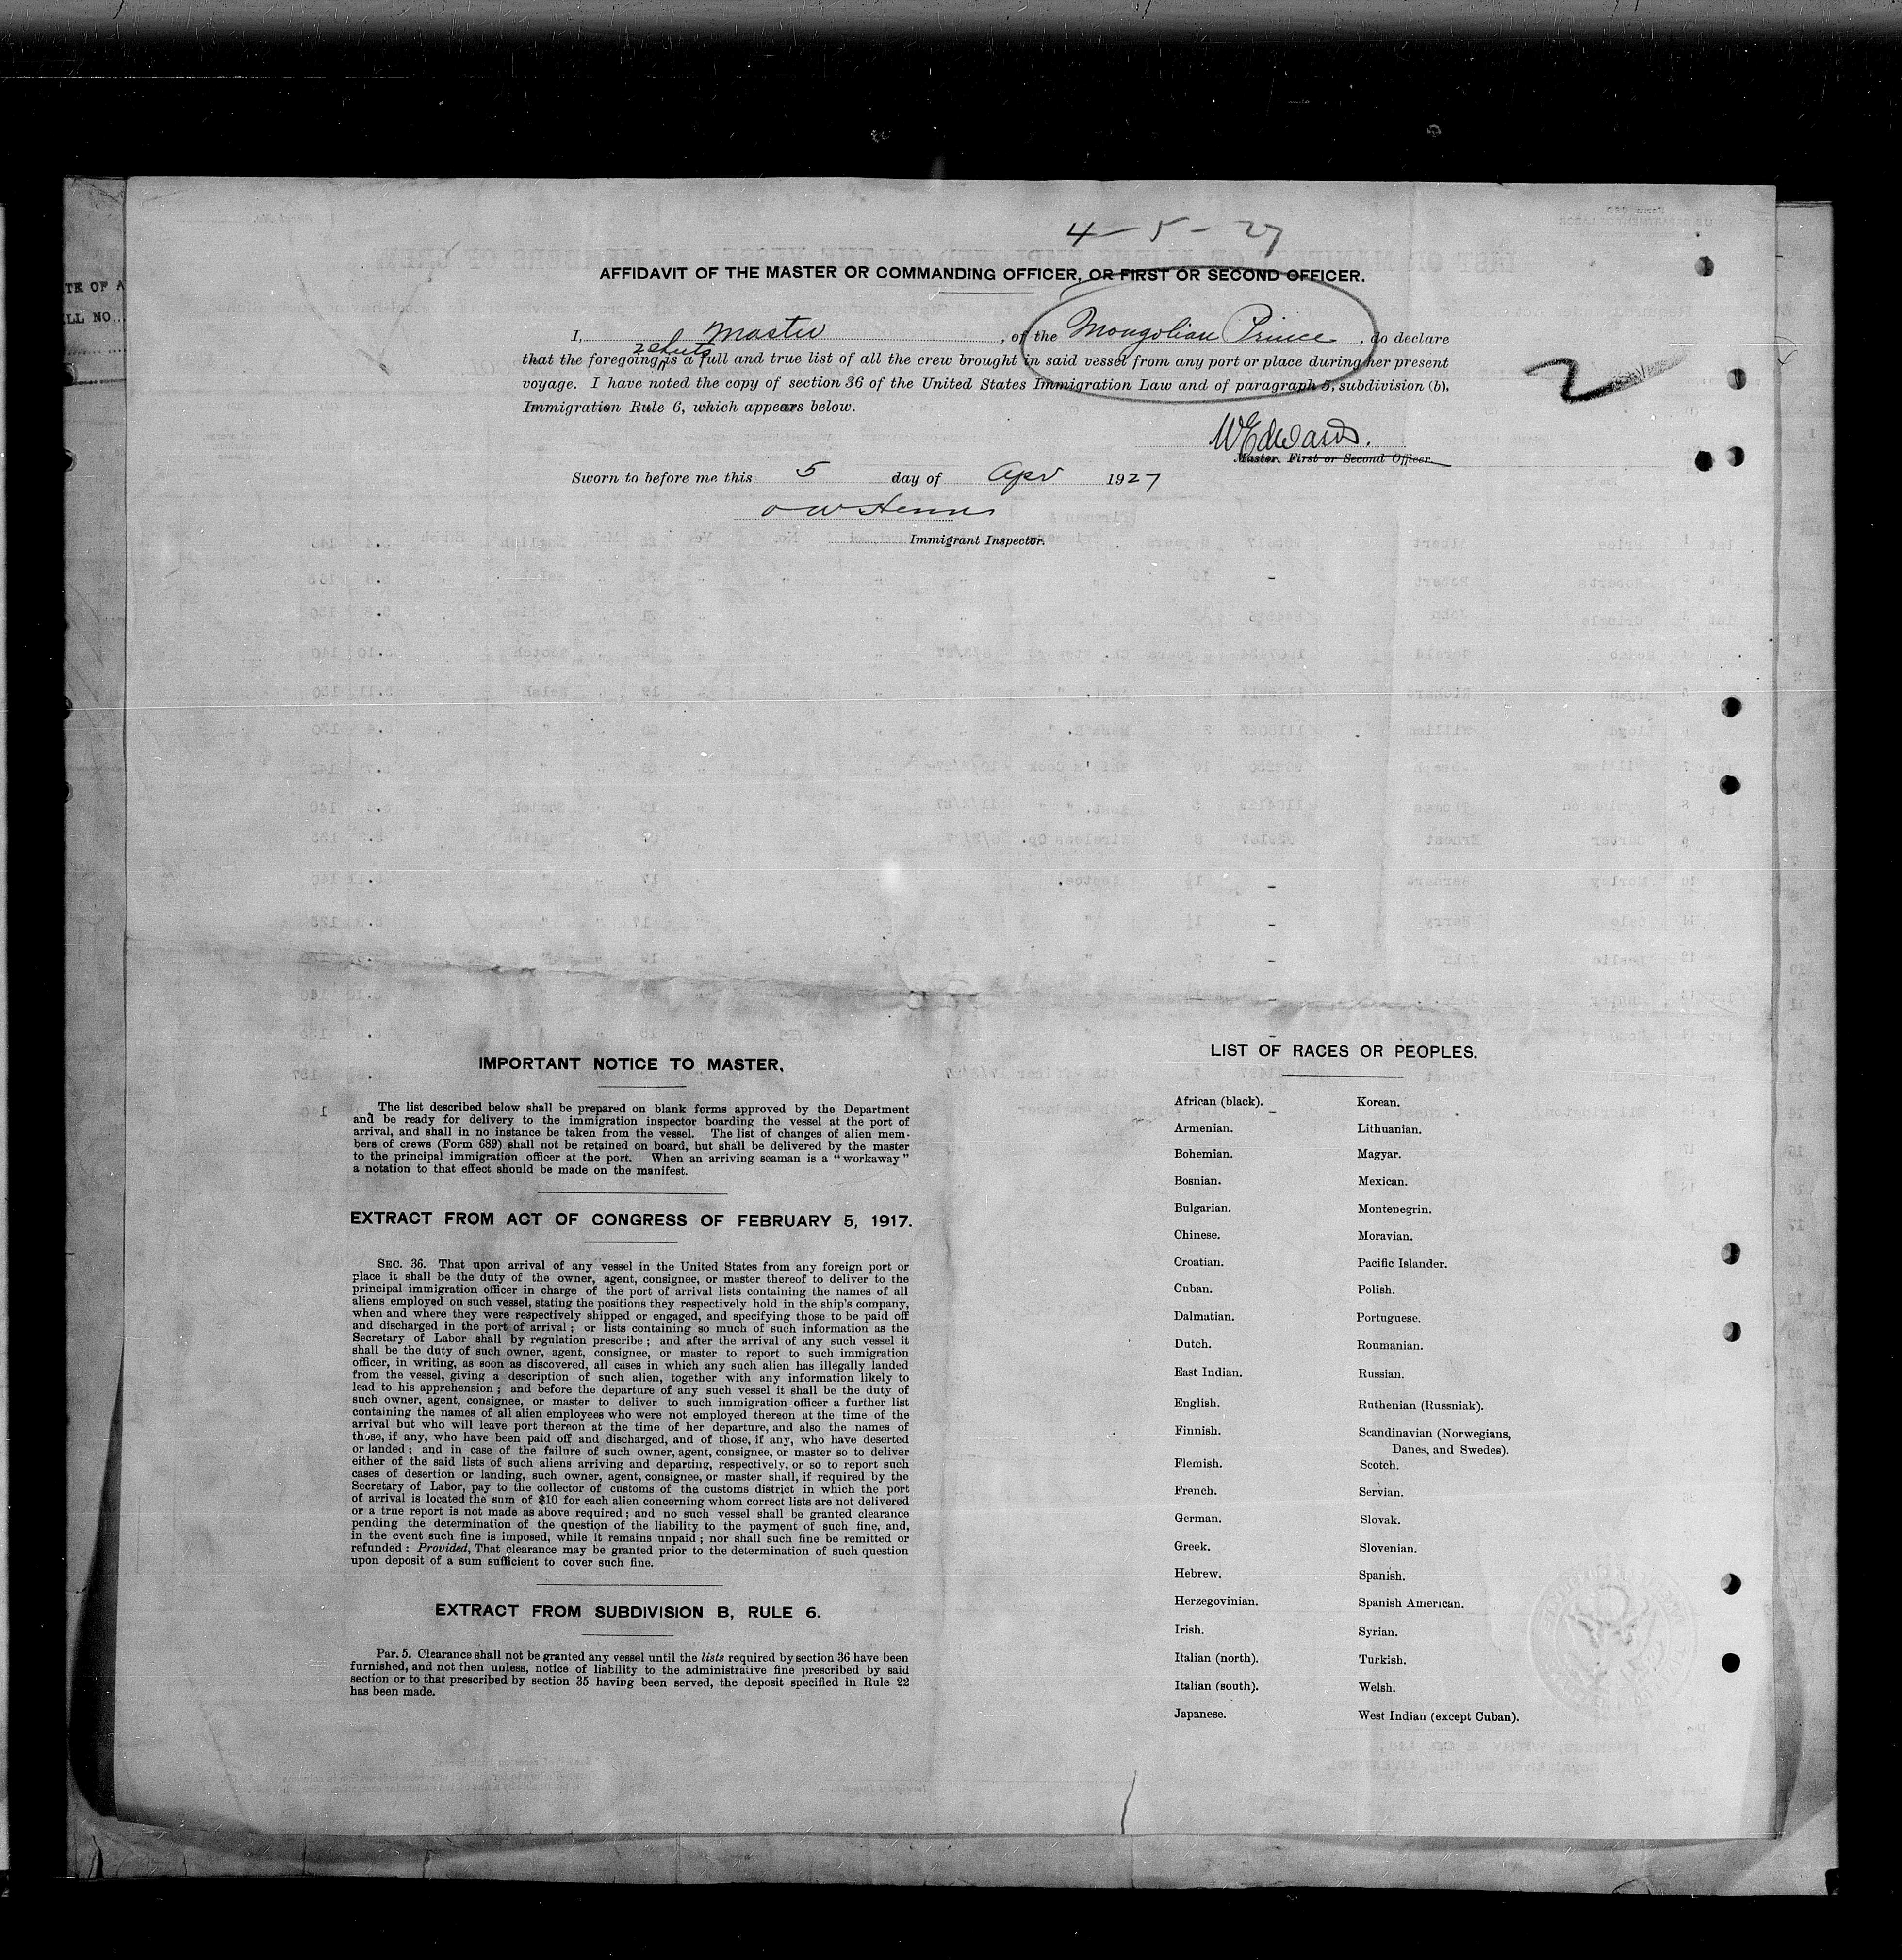 4-5-27
AFFIDAVIT OF THE MASTER OR COMMANDING OFFICER, OR FIRST OR SECOND OFFICER.
I, Master, of the Mongolian Prince, do declare
2 sheets
that the foregoing is a full and true list of all the crew brought in said vessel from any port or place during her present
voyage. I have noted the copy of section 36 of the United States Immigration Law and of paragraph 5, subdivision (b),
Immigration Rule 6, which appears below.
2
WEdwards.
Master. First or Second Officer.
Sworn to before me this 5 day of Apr 1927
Immigrant Inspector.
TE OF A
LL NO.
IMPORTANT NOTICE TO MASTER.
The list described below shall be prepared on blank forms approved by the Department
and be ready for delivery to the immigration inspector boarding the vessel at the port of
arrival, and shall in no instance be taken from the vessel. The list of changes of alien mem-
bers of crews (Form 689) shall not be retained on board, but shall be delivered by the master
to the principal immigration officer at the port. When an arriving seaman is a "workaway"
a notation to that effect should be made on the manifest.
EXTRACT FROM ACT OF CONGRESS OF FEBRUARY 5, 1917.
SEC. 36. That upon arrival of any vessel in the United States from any foreign port or
place it shall be the duty of the owner, agent, consignee, or master thereof to deliver to the
principal immigration officer in charge of the port of arrival lists containing the names of all
aliens employed on such vessel, stating the positions they respectively hold in the ship's company,
when and where they were respectively shipped or engaged, and specifying those to be paid off
and discharged in the port of arrival; or lists containing so much of such information as the
Secretary of Labor shall by regulation prescribe; and after the arrival of any such vessel it
shall be the duty of such owner, agent, consignee, or master to report to such immigration
officer, in writing, as soon as discovered, all cases in which any such alien has illegally landed
from the vessel, giving a description of such alien, together with any information likely to
lead to his apprehension; and before the departure of any such vessel it shall be the duty of
such owner, agent, consignee, or master to deliver to such immigration officer a further list
containing the names of all alien employees who were not employed thereon at the time of the
arrival but who will leave port thereon at the time of her departure, and also the names of
those, if any, who have been paid off and discharged, and of those, if any, who have deserted
or landed; and in case of the failure of such owner, agent, consignee, or master so to deliver
either of the said lists of such aliens arriving and departing, respectively, or so to report such
cases of desertion or landing, such owner, agent, consignee, or master shall, if required by the
Secretary of Labor, pay to the collector of customs of the customs district in which the port
of arrival is located the sum of $10 for each alien concerning whom correct lists are not delivered
or a true report is not made as above required; and no such vessel shall be granted clearance
pending the determination of the question of the liability to the payment of such fine, and,
in the event such fine is imposed, while it remains unpaid; nor shall such fine be remitted or
refunded: Provided, That clearance may be granted prior to the determination of such question
upon deposit of a sum sufficient to cover such fine.
EXTRACT FROM SUBDIVISION B, RULE 6.
Par. 5. Clearance shall not be granted any vessel until the lists required by section 36 have been
furnished, and not then unless, notice of liability to the administrative fine prescribed by said
section or to that prescribed by section 35 having been served, the deposit specified in Rule 22
has been made.
LIST OF RACES OR PEOPLES.
African (black).
Armenian.
Bohemian.
Bosnian.
Bulgarian.
Chinese.
Croatian.
Cuban.
Dalmatian.
Dutch.
East Indian.
English.
Finnish.
Flemish.
French.
German.
Greek.
Hebrew.
Herzegovinian.
Irish.
Italian (north).
Italian (south).
Japanese.
Korean.
Lithuanian.
Magyar.
Mexican.
Montenegrin.
Moravian.
Pacific Islander.
Polish.
Portuguese.
Roumanian.
Russian.
Ruthenian (Russniak).
Scandinavian (Norwegians,
Danes, and Swedes).
Scotch.
Servian.
Slovak.
Slovenian.
Spanish.
Spanish American.
Syrian.
Turkish.
Welsh.
West Indian (except Cuban).